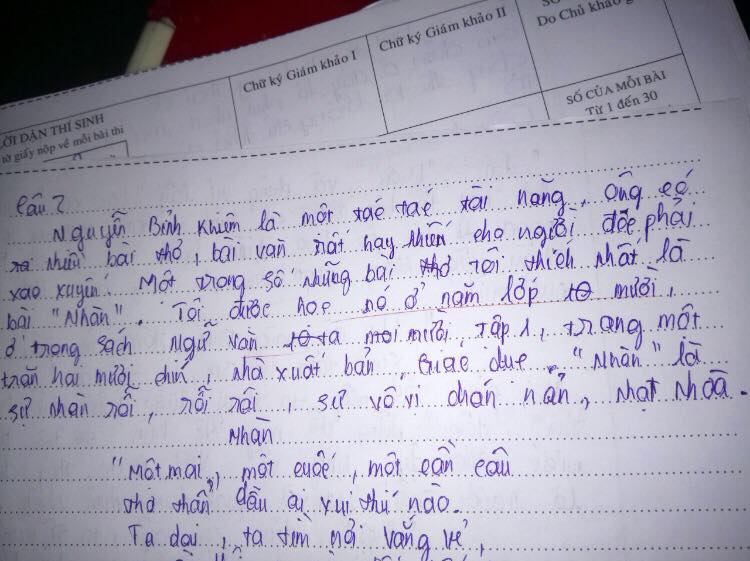 Chữ ký Giám khảo I
Chữ ký Giám khảo II
Do Chủ khảo
SỐ CỦA MỖI BÀI
Từ 1 đến 30
ỜI DẶN THÍ SINH
tờ giấy nộp về mỗi bài thi
Câu 2
Nguyễn Bỉnh Khiêm là một tác tác tài năng, ông có
ra nhiều bài thơ, bài văn rất hay khiến cho người đọc phải
xao xuyến. Một trong số những bài thơ tôi thích nhất là
bài "Nhàn". Tôi được học nó ở năm lớp 10 mười,
ở trong sách Ngữ văn 10 ta mơi mười, tập 1, trang một
trăn hai mươi chín, nhà xuất bản, Giáo dục. "Nhàn" là
sự nhàn rỗi, rỗi rãi, sự vô vi chán nản, nhạt nhoà.
Nhàn
"Một mai, một cuốc, một cần câu
thơ thẩn dầu ai vui thú nào.
Ta dại, ta tìm nơi vắng vẻ,